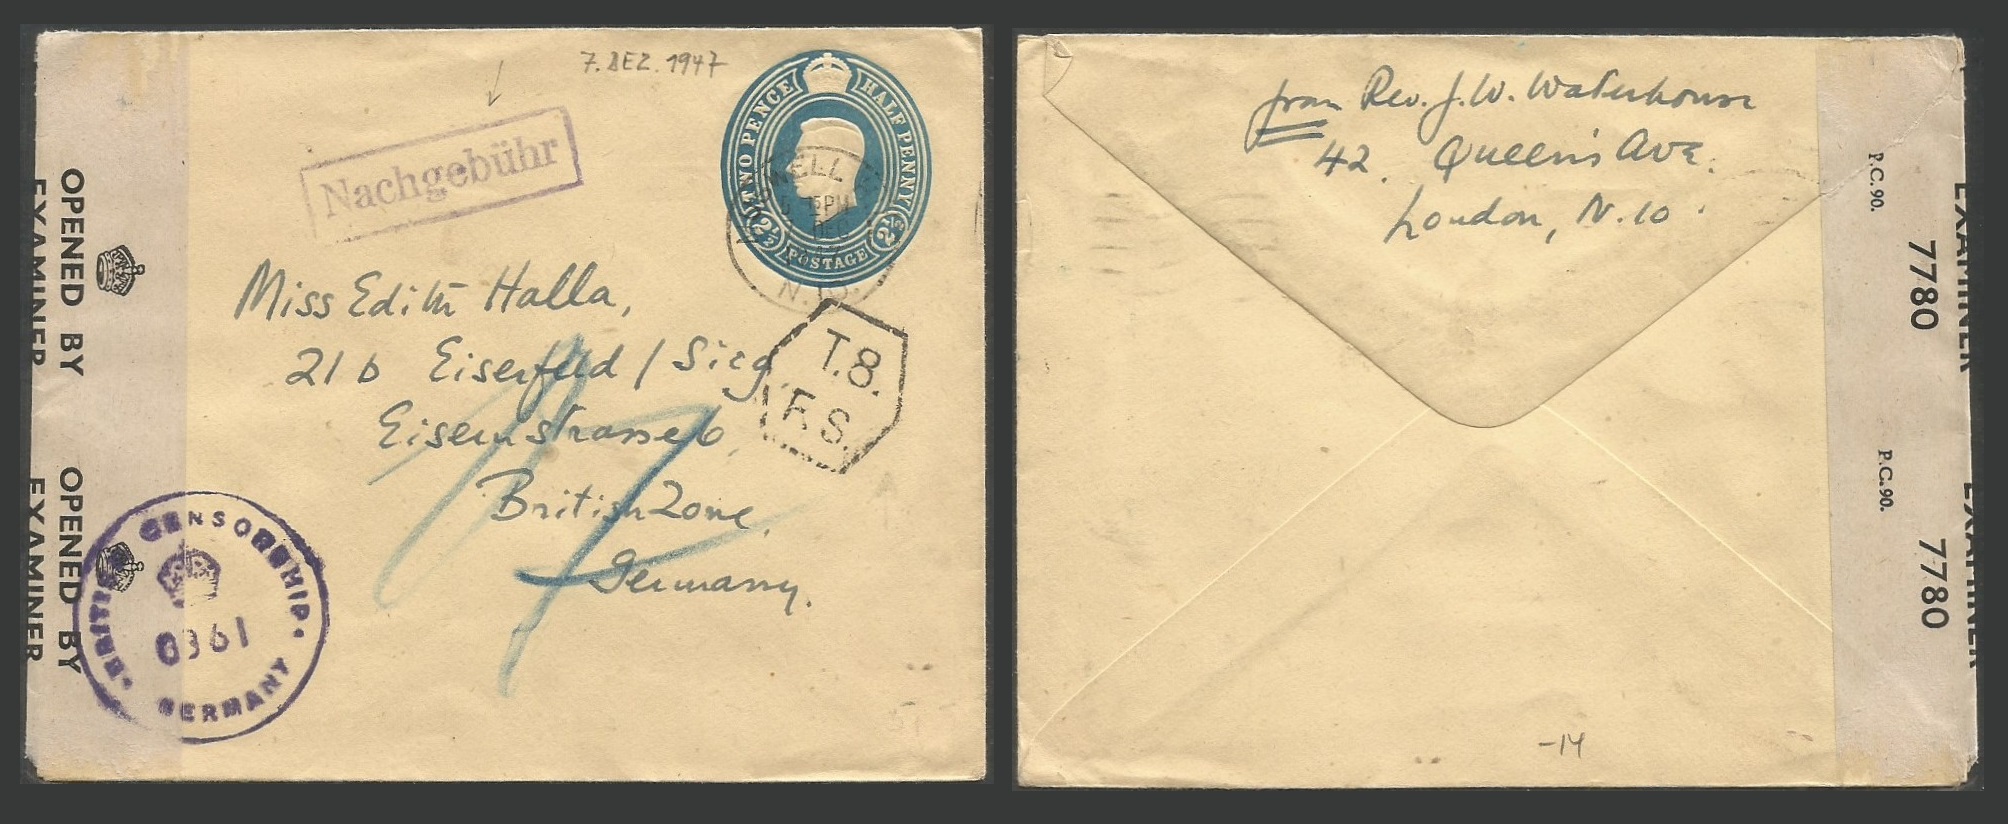 7. DEZ. 1947
Nachgebühr
TWO PENCE HALF PENNY
2½ POSTAGE 2½
WELL
PM
DEC
N.10.
T.8.
F.S.
Miss Edith Halla,
21b Eiserfeld / Sieg
Eisernstrasse 6,
British Zone,
Germany.
OPENED BY
EXAMINER
OPENED BY
EXAMINER
BRITISH CENSORSHIP
0361
GERMANY
from Rev. J. W. Waterhouse
42. Queen's Ave.
London, N.10.
P.C. 90.
EXAMINER
7780
P.C. 90.
EXAMINER
7780
-14